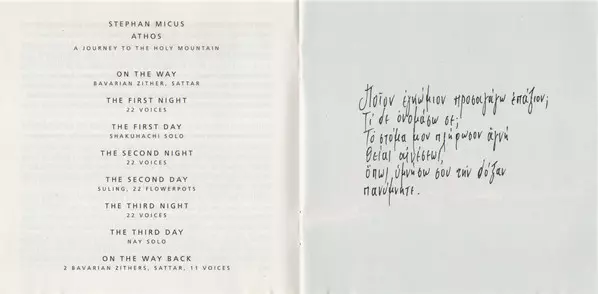 STEPHAN MICUS
ATHOS
A JOURNEY TO THE HOLY MOUNTAIN
ON THE WAY
BAVARIAN ZITHER, SATTAR
THE FIRST NIGHT
22 VOICES
THE FIRST DAY
SHAKUHACHI SOLO
THE SECOND NIGHT
22 VOICES
THE SECOND DAY
SULING, 22 FLOWERPOTS
THE THIRD NIGHT
22 VOICES
THE THIRD DAY
NAY SOLO
ON THE WAY BACK
2 BAVARIAN ZITHERS, SATTAR, 11 VOICES
Ποῖον ἐγκώμιον προσαγάγω ἐπάξιον;
Τί δε ὀνομάσω σε;
Τό στόμα μου πλήρωσον
θείας αἰνέσεως,
ὅπως ὑμνήσω σου τήν δόξαν
πανύμνητε.